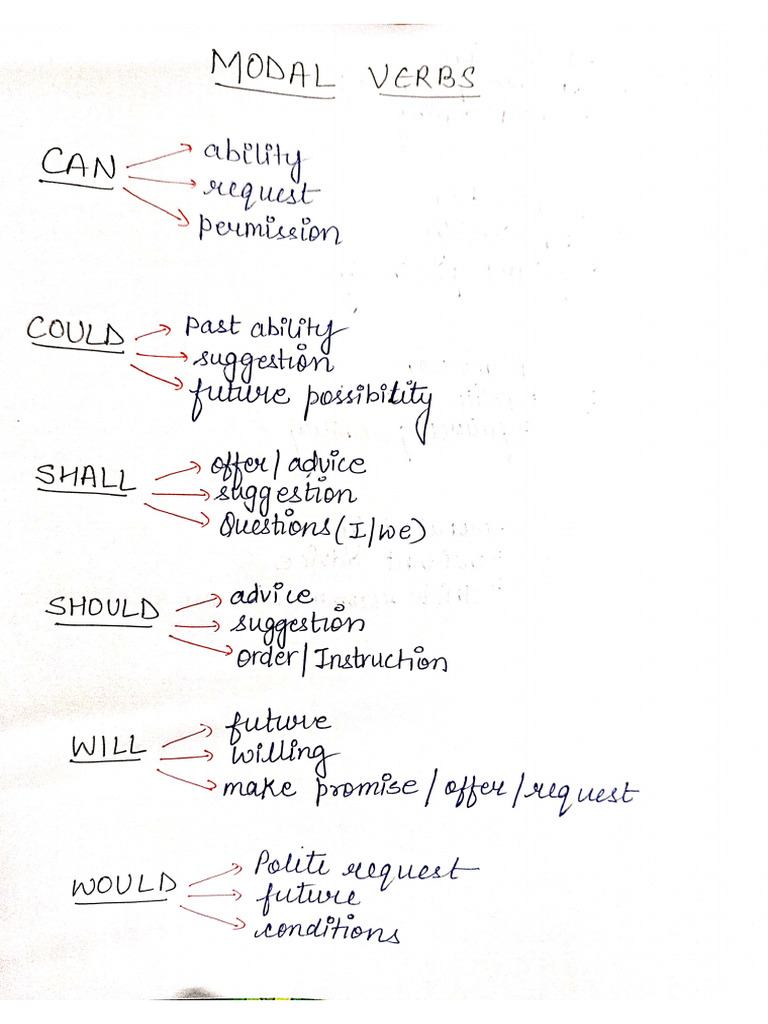 MODAL VERBS
CAN
ability
request
permission
COULD
Past ability
suggestion
future possibility
SHALL
offer/advice
suggestion
Questions (I/we)
SHOULD
advice
suggestion
order/Instruction
WILL
future
willing
make promise/offer/request
WOULD
Polite request
future
conditions